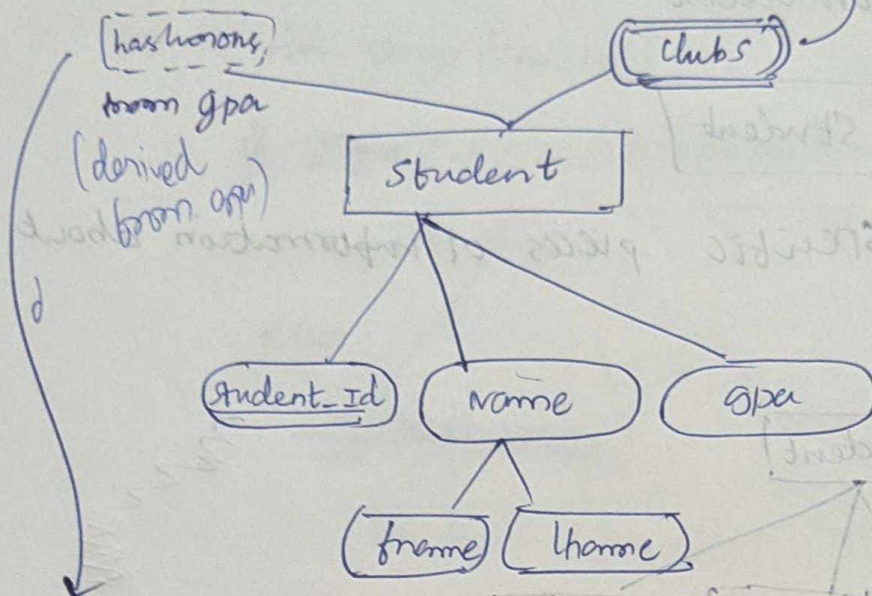 hashonons
clubs
gpa
(derived
from gpa)
Student
d
Student_Id
Name
gpa
fname
lname